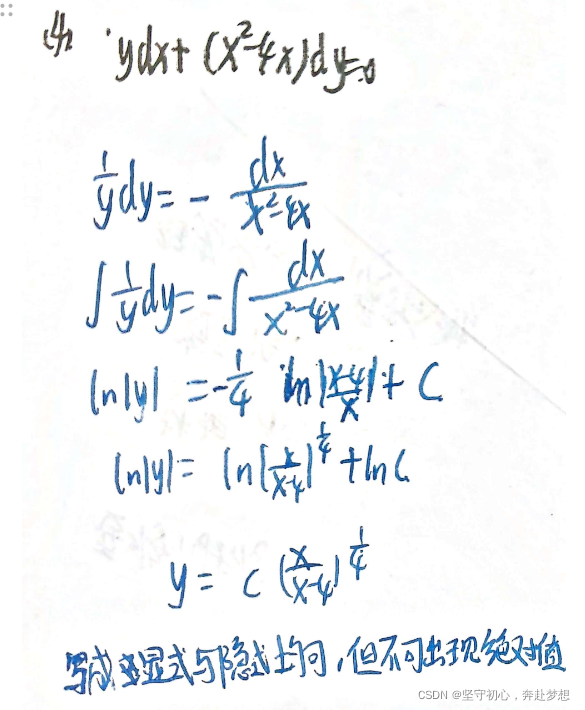 (4) ydx+(x²-4x)dy=0
1/y dy = - dx/(x²-4x)
∫ 1/y dy = -∫ dx/(x²-4x)
ln|y| = -1/4 ln|(x-4)/x| + C
ln|y| = ln|x/(x-4)|^(1/4) + ln C
y = C (x/(x-4))^(1/4)
写成显式与隐式均可,但不可出现绝对值
CSDN @坚守初心,奔赴梦想